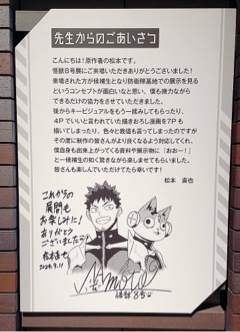 先生からのごあいさつ
こんにちは!原作者の松本です。
怪獣8号展にご来場いただきありがとうございます!
来場された方が候補生となり防衛隊基地での展示を見る
というコンセプトが面白いなと思い、僕も微力ながら
できるだけの協力をさせていただきました。
後からキービジュアルをもう一揉みしてもらったり、
4Pでいいと言われていた描きおろし漫画を7Pも
描いてしまったり、色々と我儘言ってしまったのですが
その度に制作の皆さんがより良くなるよう対応してくれ、
僕自身も出来上がってくる資料や展示物に「おおー!」
と一候補生の如く驚きながら楽しませてもらいました。
皆さんも楽しんでいただけたら幸いです!
松本 直也
これからの
展開も
お楽しみに!
ありがとう
ございました!
松本直也
怪獣8号